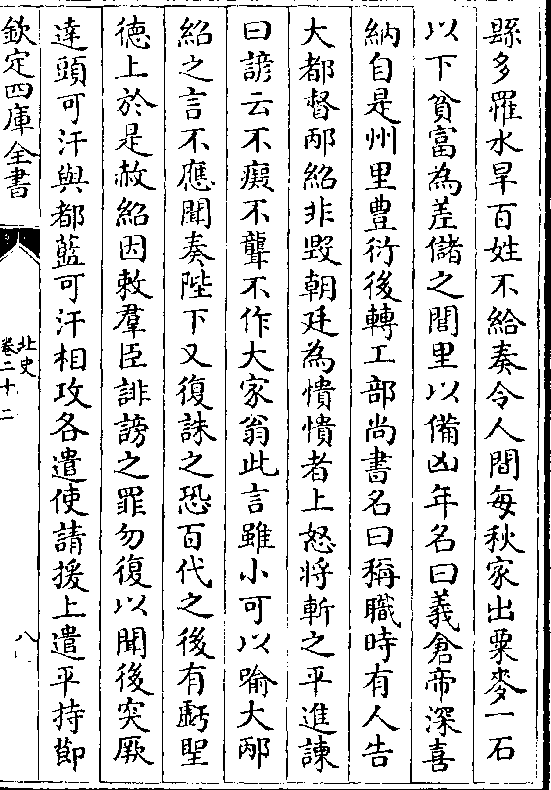 縣多罹水旱百姓不給奏令人間每秋家出粟麥一石
以下貧富為差儲之閭里以備凶年名曰義倉帝深喜
納自是州里豊衍後轉工部尚書名曰稱職時有人告
大都督邴紹非毀朝廷為憒憒者上怒將斬之平進諫
曰諺云不癡不聾不作大家翁此言雖小可以喻大邴
紹之言不應聞奏陛下又復誅之恐百代之後有虧聖
徳上於是赦紹因敕羣臣誹謗之罪勿復以聞後突厥
達頭可汗與都藍可汗相攻各遣使請援上遣平持節
欽定四庫全書
北史
卷二十二
八